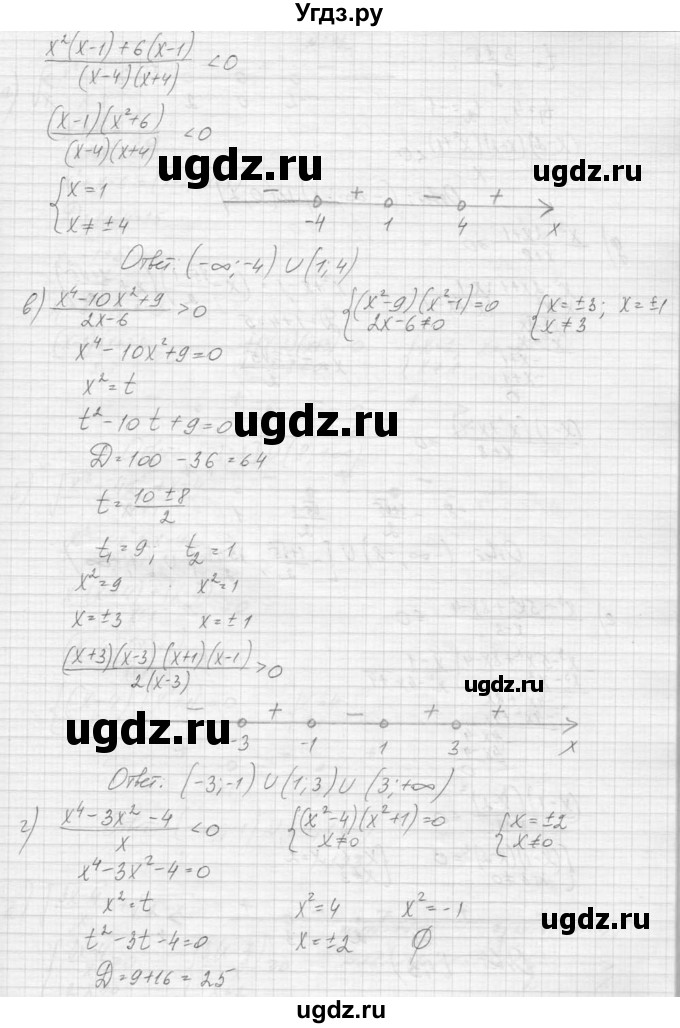 Угдз.ру
x²(x-1)+6(x-1) / (x-4)(x+4) <0
(x-1)(x²+6) / (x-4)(x+4) <0
ugdz.ru
ugdz.ru
{x=1
x≠±4
- + - +
-4 1 4 x
Ответ: (-∞;-4)∪(1;4)
в) x⁴-10x²+9 / 2x-6 >0 {(x²-9)(x²-1)=0 2x-6≠0 {x=±3; x=±1 x≠3
x⁴-10x²+9=0
x²=t
t²-10t+9=0
ugdz.ru
D=100-36=64
t=10±8 / 2
t₁=9; t₂=1
x²=9 x²=1
x=±3 x=±1
(x+3)(x-3)(x+1)(x-1) / 2(x-3) >0
ugdz.ru
ugdz.ru
- + - + +
-3 -1 1 3 x
Ответ: (-3;-1)∪(1;3)∪(3;+∞)
г) x⁴-3x²-4 / x <0 {(x²-4)(x²+1)=0 x≠0 {x=±2 x≠0
x⁴-3x²-4=0
x²=t x²=4 x²=-1
ugdz.ru
t²-3t-4=0 x=±2 ∅
D=9+16=25
ugdz.ru